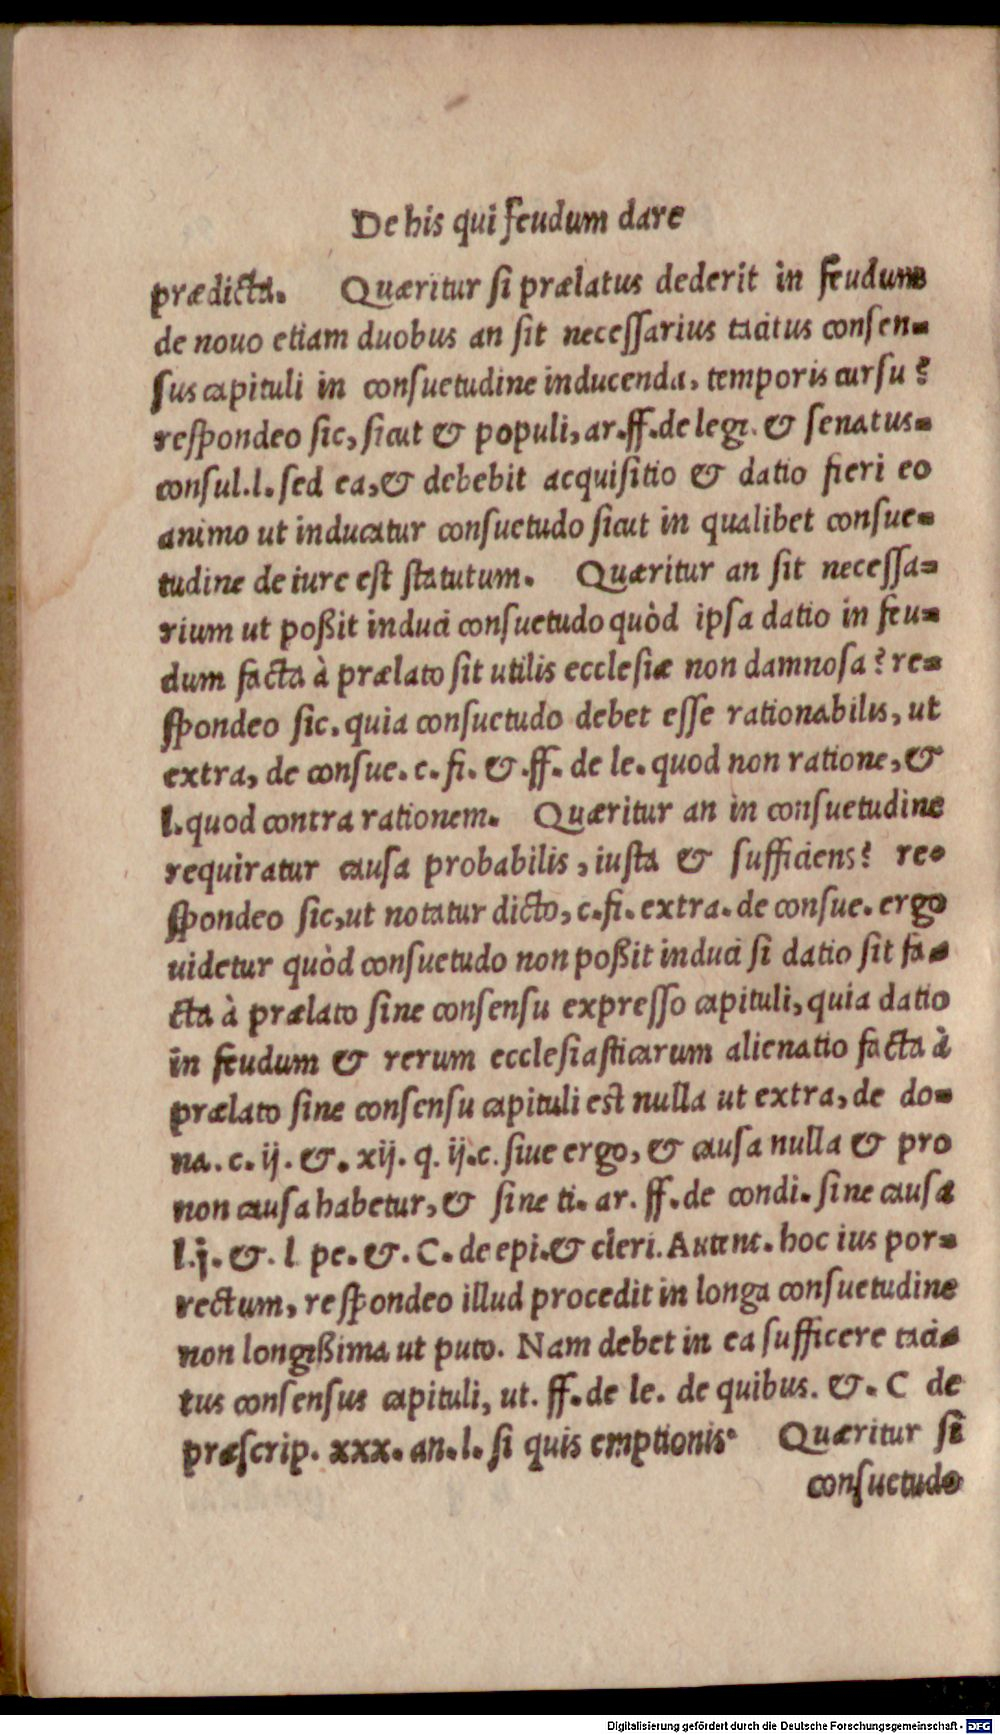 De his qui feudum dare
prædicta. Quæritur si prælatus dederit in feudum
de nouo etiam duobus an sit necessarius tacitus consen-
sus capituli in consuetudine inducenda, temporis cursu?
respondeo sic, sicut & populi, ar.ff.de legi. & senatus-
consul.l.sed ea,& debebit acquisitio & datio fieri eo
animo ut inducatur consuetudo sicut in qualibet consue-
tudine de iure est statutum. Quæritur an sit necessa-
rium ut poßit induci consuetudo quòd ipsa datio in feu-
dum facta à prælato sit utilis ecclesiæ non damnosa? re-
spondeo sic. quia consuetudo debet esse rationabilis, ut
extra, de consue.c.fi.&.ff.de le.quod non ratione,&
l.quod contra rationem. Quæritur an in consuetudine
requiratur causa probabilis, iusta & sufficiens? re-
spondeo sic,ut notatur dicto, c.fi.extra.de consue.ergo
uidetur quòd consuetudo non poßit induci si datio sit fa-
cta à prælato sine consensu expresso capituli, quia datio
in feudum & rerum ecclesiasticarum alienatio facta à
prælato sine consensu capituli est nulla ut extra, de do-
na.c.ij.&.xij.q.ij.c.siue ergo, & causa nulla & pro
non causa habetur,& sine ti.ar.ff.de condi.sine causa
l.j.&.l pe.&.C.de epi.& cleri.Autent.hoc ius por-
rectum, respondeo illud procedit in longa consuetudine
non longißima ut puto. Nam debet in ea sufficere taci-
tus consensus capituli, ut.ff.de le. de quibus.&.C de
præscrip.xxx.an.l.si quis emptionis. Quæritur si
consuetudo
Digitalisierung gefördert durch die Deutsche Forschungsgemeinschaft - DFG